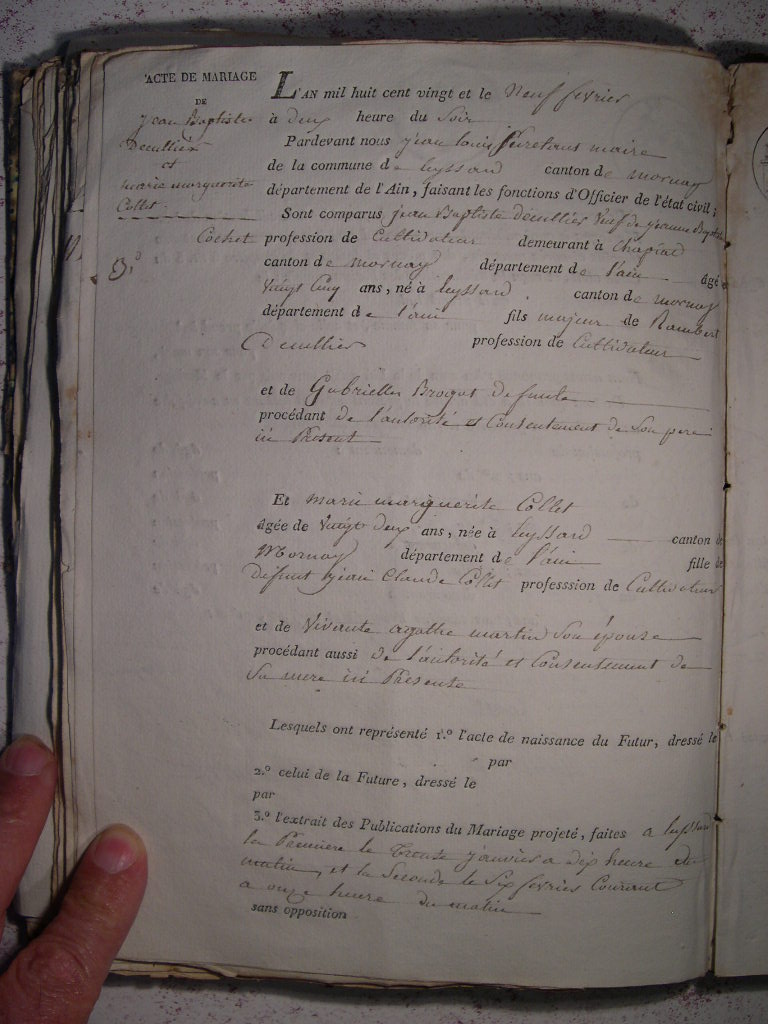 ACTE DE MARIAGE
DE
jean Baptiste
Decullier
et
marie marguerite
Collet
3.º
L'AN mil huit cent vingt et le Neuf fevrier
à deux heure du Soir
Pardevant nous jean louis maire
de la commune de leyssard canton de mornay
département de l'Ain, faisant les fonctions d'Officier de l'état civil;
Sont comparus jean Baptiste Decullier Veuf de jeanne Baptiste
Cochet profession de Cultivateur demeurant à Chapiat
canton de mornay département de l'ain âgé
vingt Cinq ans, né à leyssard canton de mornay
département de l'ain fils majeur de Rambert
Decullier profession de Cultivateur
et de Gabrielle Brogot defunte
procédant de l'autorité et Consentement de Son pere
ici Present
Et marie marguerite Collet
âgée de Vingt deux ans, née à leyssard canton de
Mornay département de l'ain fille de
defunt jean Claude Collet professsion de Cultivateur
et de Vivante agathe martin Son épouse
procédant aussi de l'autorité et Consentement de
Sa mere ici Presente
Lesquels ont représenté 1.º l'acte de naissance du Futur, dressé le
par
2.º celui de la Future, dressé le
par
3.º l'extrait des Publications du Mariage projeté, faites a leyssard
la Premiere le Trente janvier a dix heure du
matin, et la Seconde le Six fevrier Courant
a onze heure du matin
sans opposition